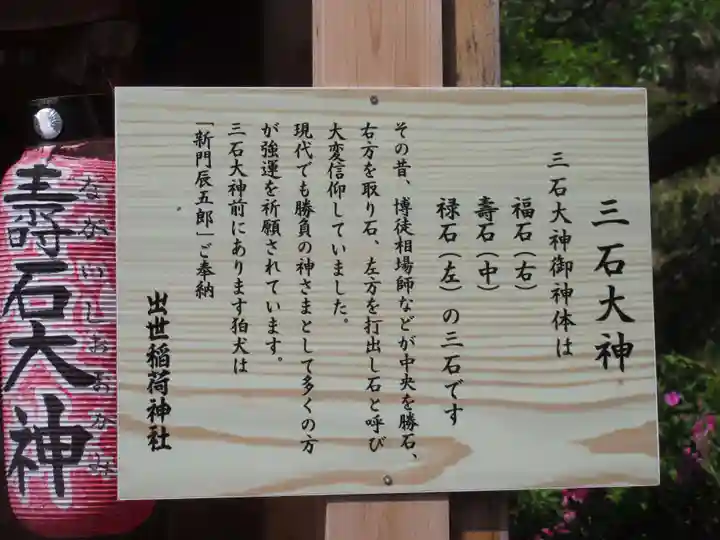 三石大神
三石大神御神体は
福石(右)
壽石(中)
禄石(左)の三石です
その昔、博徒相場師などが中央を勝石、
右方を取り石、左方を打出し石と呼び
大変信仰していました。
現代でも勝負の神さまとして多くの方
が強運を祈願されています。
三石大神前にあります狛犬は
「新門辰五郎」ご奉納
出世稲荷神社
壽石大神
ながいしおおかみ